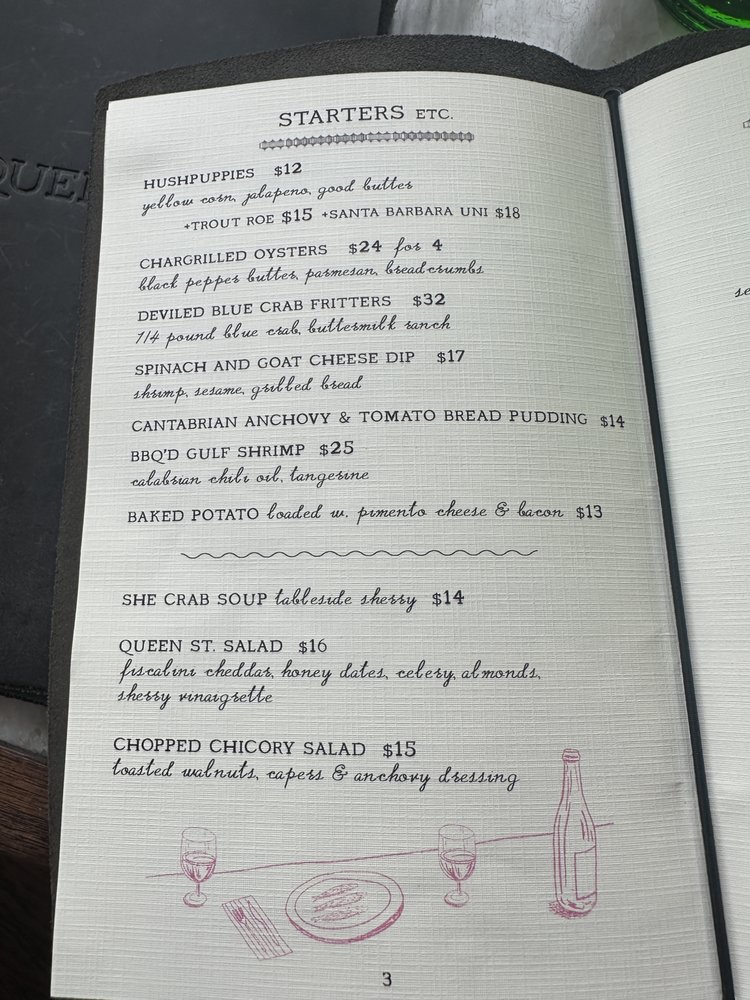 STARTERS ETC.
HUSHPUPPIES $12
yellow corn, jalapeno, good butter
+TROUT ROE $15 +SANTA BARBARA UNI $18
CHARGRILLED OYSTERS $24 for 4
black pepper butter, parmesan, breadcrumbs
DEVILED BLUE CRAB FRITTERS $32
1/4 pound blue crab, buttermilk ranch
SPINACH AND GOAT CHEESE DIP $17
shrimp, sesame, grilled bread
CANTABRIAN ANCHOVY & TOMATO BREAD PUDDING $14
BBQ'D GULF SHRIMP $25
calabrian chili oil, tangerine
BAKED POTATO loaded w. pimento cheese & bacon $13
SHE CRAB SOUP tableside sherry $14
QUEEN ST. SALAD $16
fiscalini cheddar, honey dates, celery, almonds,
sherry vinaigrette
CHOPPED CHICORY SALAD $15
toasted walnuts, capers & anchovy dressing
3